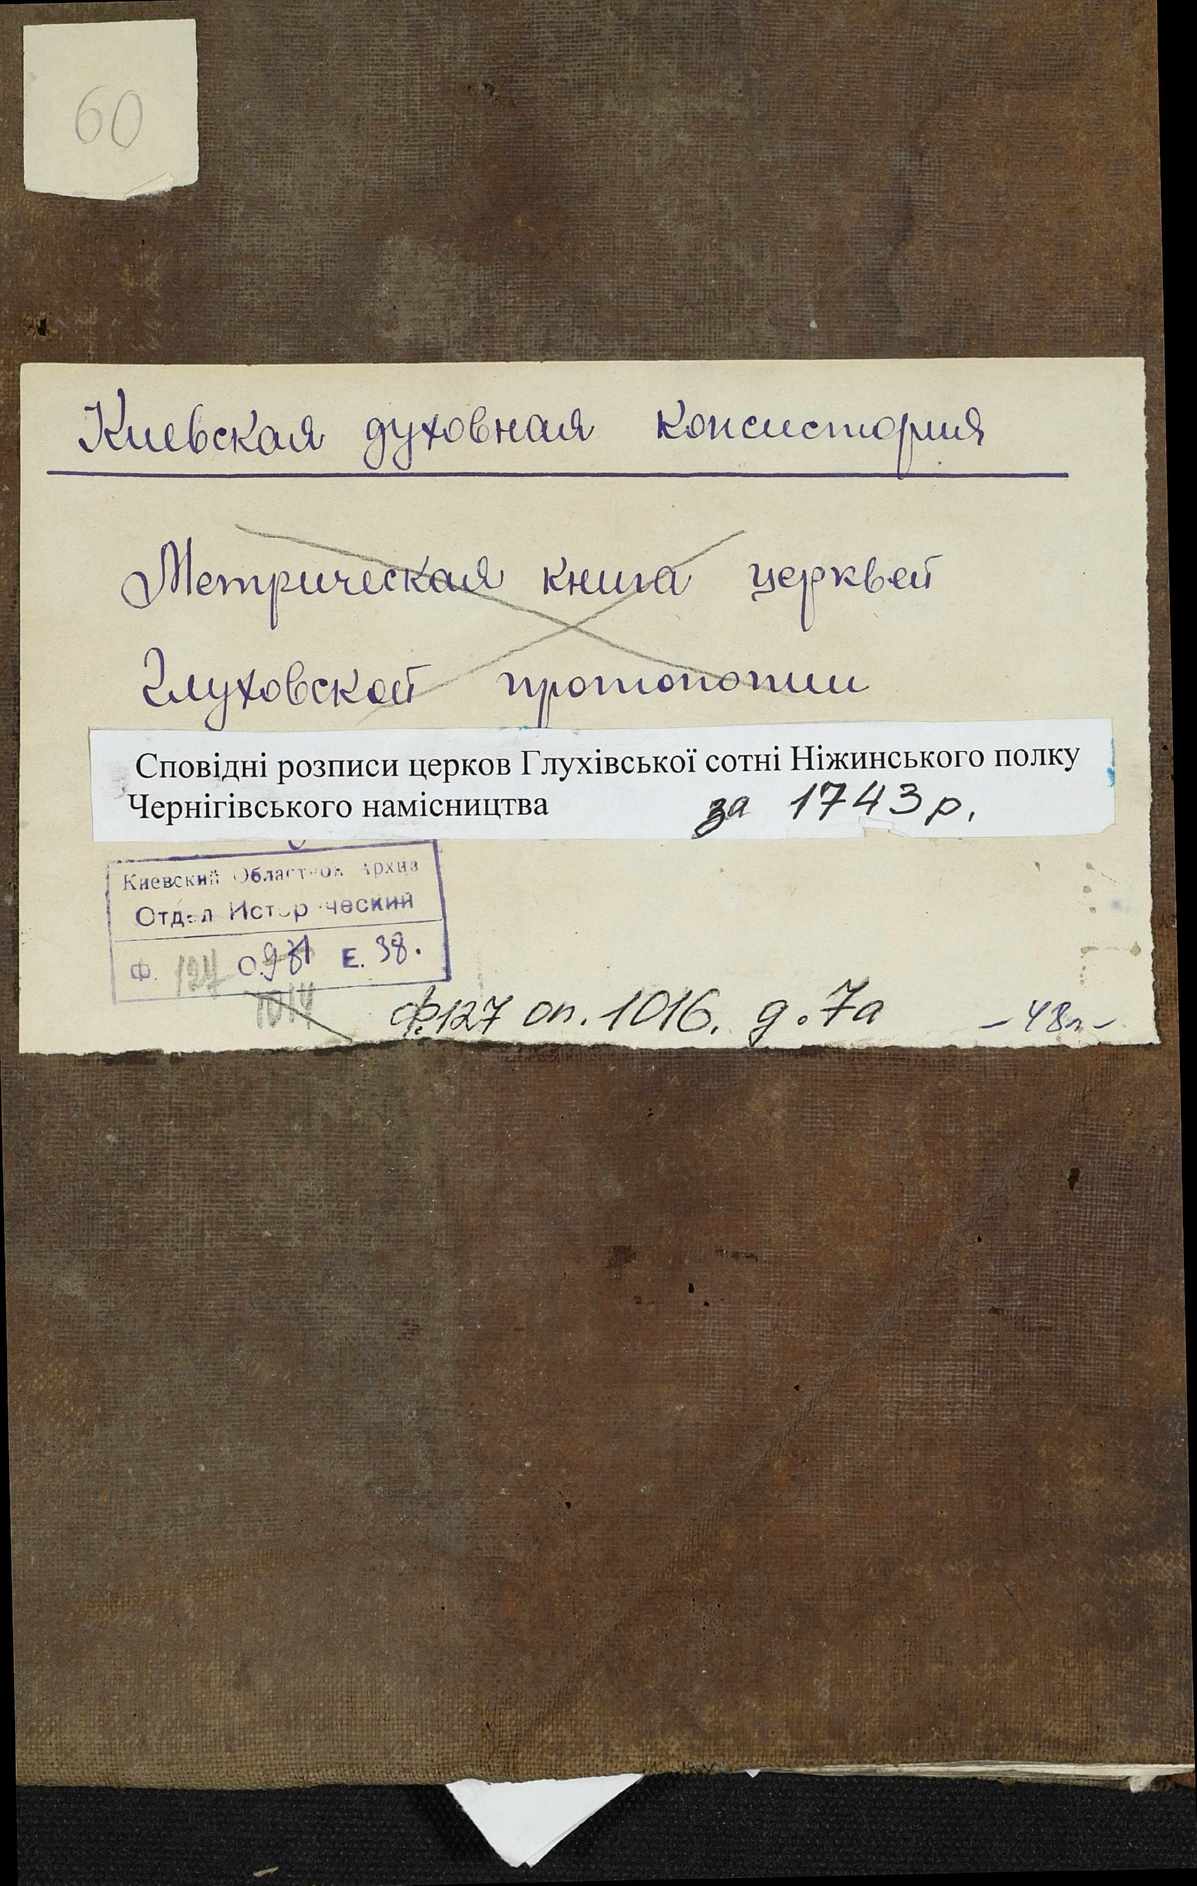 60
Киевская духовная консистория
Метрическая книга церквей
Глуховской протопопии
Сповідні розписи церков Глухівської сотні Ніжинського полку
Чернігівського намісництва за 1743 р.
Киевский Областной Архив
Отдел Исторический
Ф. 127 О. Е. 38.
1014
ф.127 оп. 1016. д. 7а - 48л -